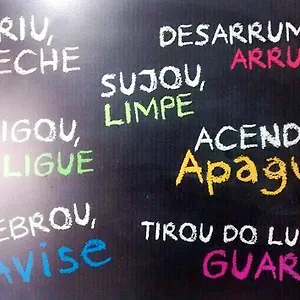 RIU,
ECHE
DESARRUM
ARRU
SUJOU,
LIMPE
IGOU,
LIGUE
ACEND
Apagu
EBROU,
Avise
TIROU DO LU
GUAR